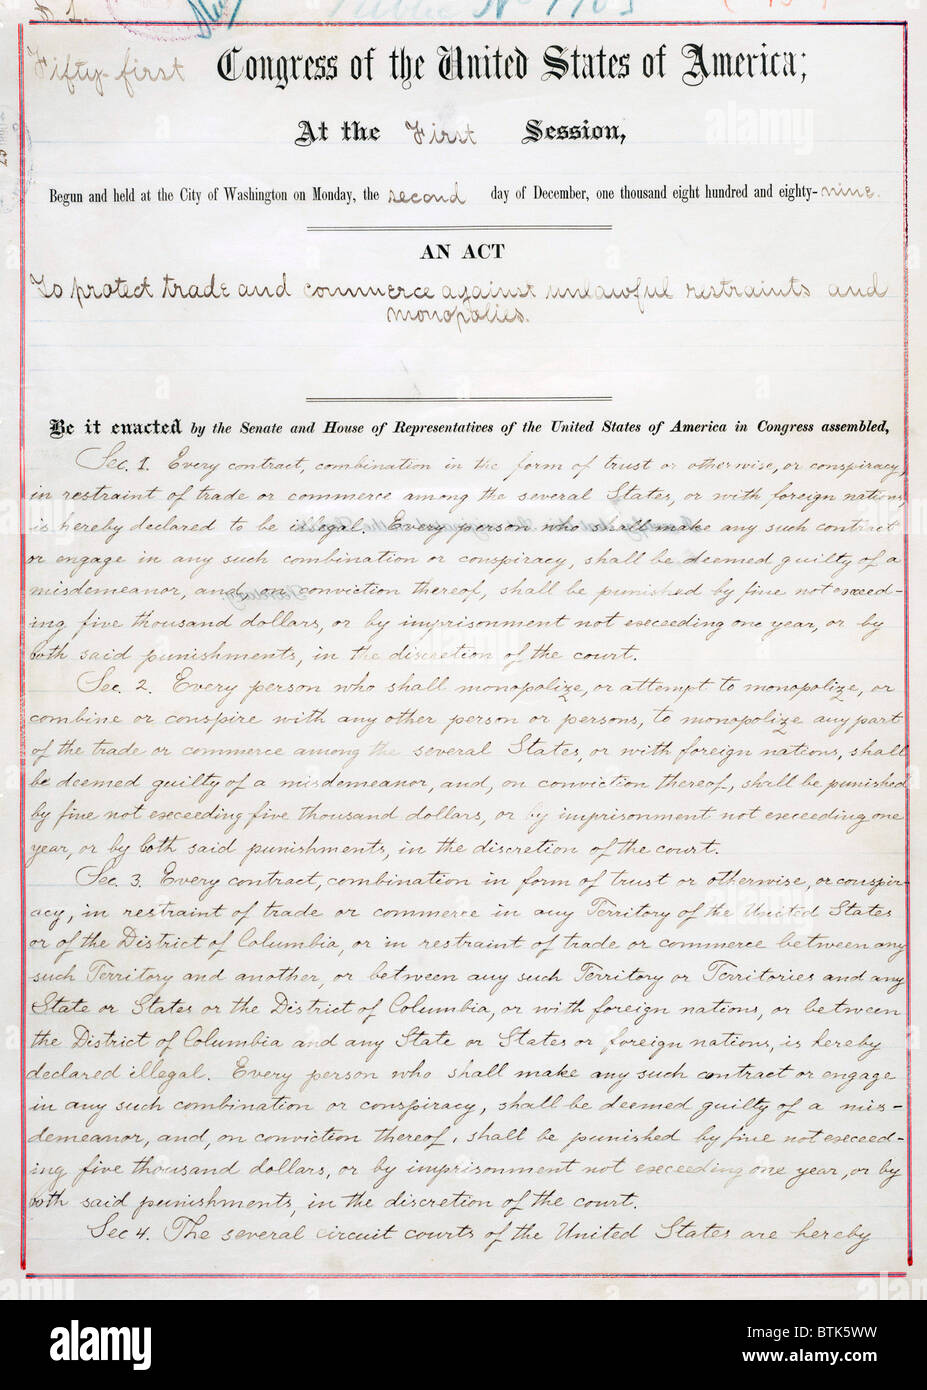 Public No
Fifty-first Congress of the United States of America;
At the First Session,
Begun and held at the City of Washington on Monday, the second day of December, one thousand eight hundred and eighty-nine.
AN ACT
To protect trade and commerce against unlawful restraints and
monopolies.
Be it enacted by the Senate and House of Representatives of the United States of America in Congress assembled,
Sec. 1. Every contract, combination in the form of trust or otherwise, or conspiracy,
in restraint of trade or commerce among the several States, or with foreign nations,
is hereby declared to be illegal. Every person who shall make any such contract
or engage in any such combination or conspiracy, shall be deemed guilty of a
misdemeanor, and, on conviction thereof, shall be punished by fine not exceed-
ing five thousand dollars, or by imprisonment not exceeding one year, or by
both said punishments, in the discretion of the court.
Sec. 2. Every person who shall monopolize, or attempt to monopolize, or
combine or conspire with any other person or persons, to monopolize any part
of the trade or commerce among the several States, or with foreign nations, shall
be deemed guilty of a misdemeanor, and, on conviction thereof, shall be punished
by fine not exceeding five thousand dollars, or by imprisonment not exceeding one
year, or by both said punishments, in the discretion of the court.
Sec. 3. Every contract, combination in form of trust or otherwise, or conspir-
acy, in restraint of trade or commerce in any Territory of the United States
or of the District of Columbia, or in restraint of trade or commerce between any
such Territory and another, or between any such Territory or Territories and any
State or States or the District of Columbia, or with foreign nations, or between
the District of Columbia and any State or States or foreign nations, is hereby
declared illegal. Every person who shall make any such contract or engage
in any such combination or conspiracy, shall be deemed guilty of a mis-
demeanor, and, on conviction thereof, shall be punished by fine not exceed-
ing five thousand dollars, or by imprisonment not exceeding one year, or by
both said punishments, in the discretion of the court.
Sec. 4. The several circuit courts of the United States are hereby
alamy
Image ID: BTK5WW
www.alamy.com